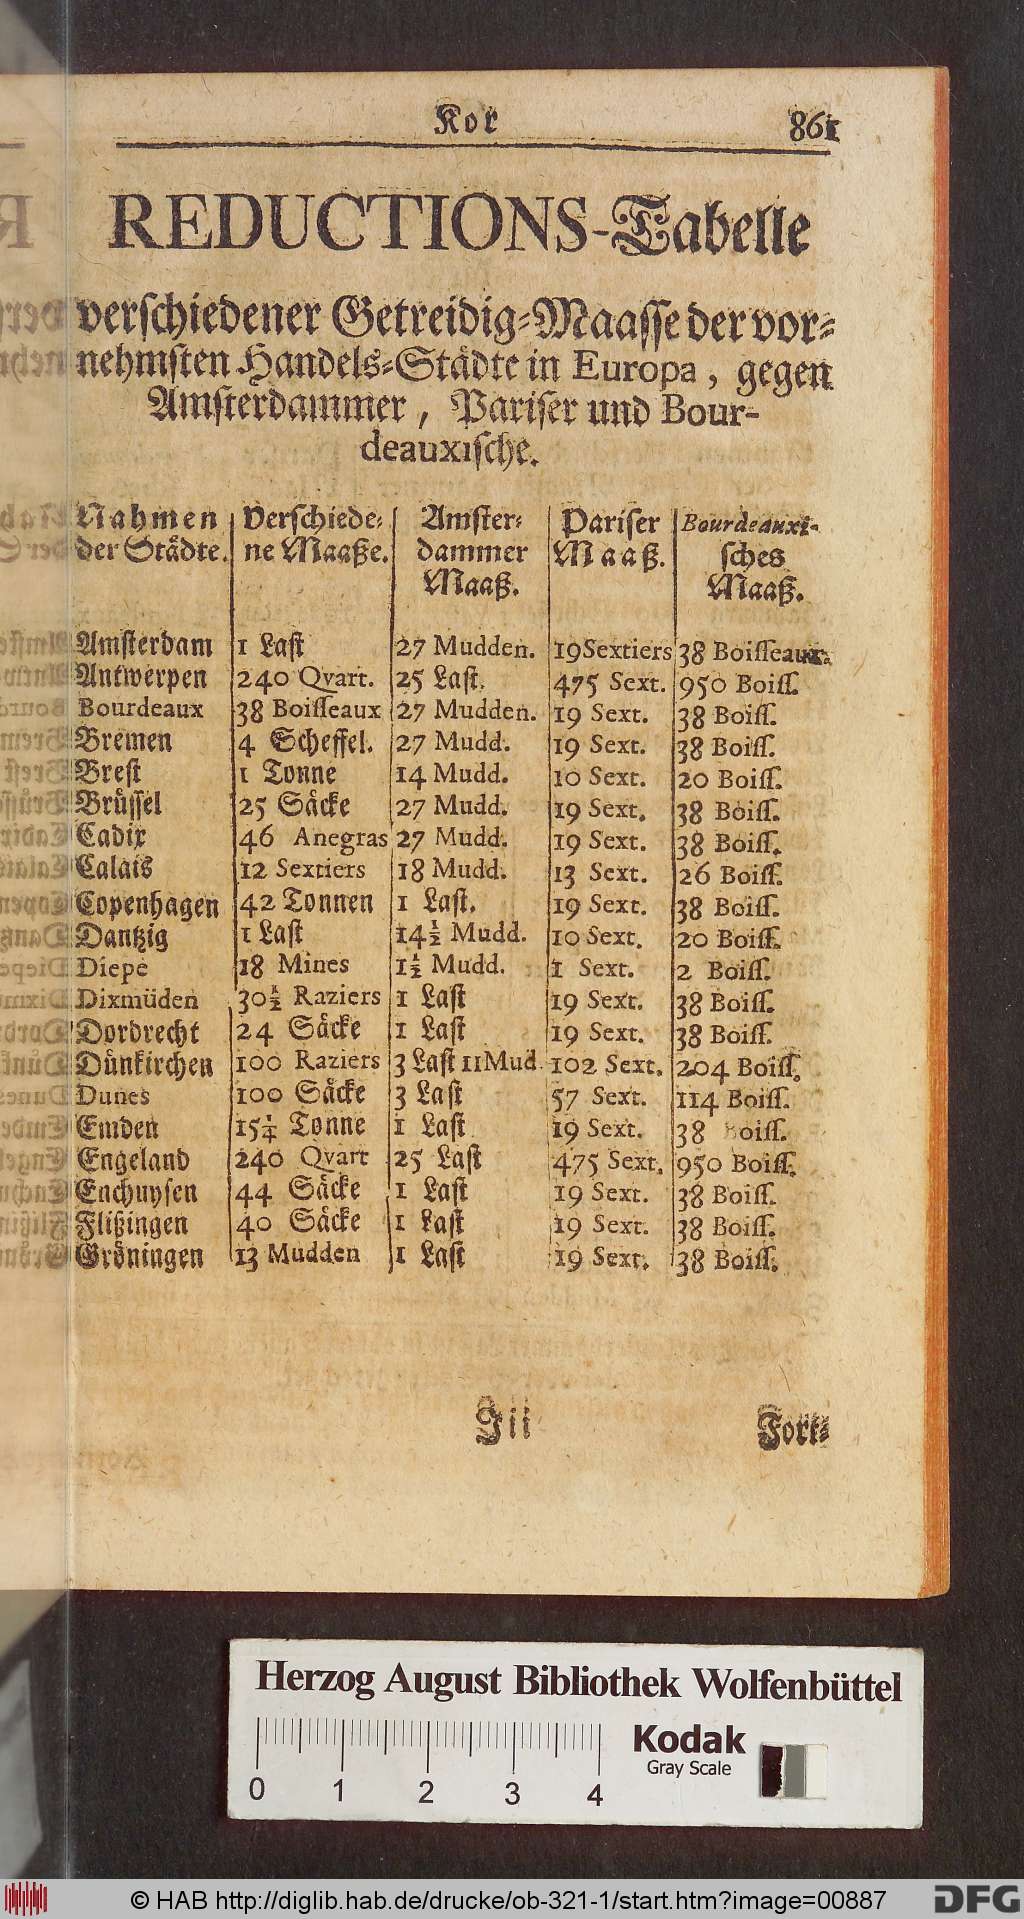 Kor 861
REDUCTIONS-Tabelle
verschiedener Getreidig-Maasse der vor-
nehmsten Handels-Städte in Europa, gegen
Amsterdammer, Pariser und Bour-
deauxische.
Nahmen der Städte. Verschiede-ne Maaße. Amster-dammer Maaß. Pariser Maaß. Bourdeauxi-sches Maaß.
Amsterdam 1 Last 27 Mudden. 19 Sextiers 38 Boisseaux.
Antwerpen 240 Qvart. 25 Last. 475 Sext. 950 Boiss.
Bourdeaux 38 Boisseaux 27 Mudden. 19 Sext. 38 Boiss.
Bremen 4 Scheffel. 27 Mudd. 19 Sext. 38 Boiss.
Brest 1 Tonne 14 Mudd. 10 Sext. 20 Boiss.
Brüssel 25 Säcke 27 Mudd. 19 Sext. 38 Boiss.
Cadix 46 Anegras 27 Mudd. 19 Sext. 38 Boiss.
Calais 12 Sextiers 18 Mudd. 13 Sext. 26 Boiss.
Copenhagen 42 Tonnen 1 Last. 19 Sext. 38 Boiss.
Dantzig 1 Last 14½ Mudd. 10 Sext. 20 Boiss.
Diepe 18 Mines 1½ Mudd. 1 Sext. 2 Boiss.
Dixmüden 30½ Raziers 1 Last 19 Sext. 38 Boiss.
Dordrecht 24 Säcke 1 Last 19 Sext. 38 Boiss.
Dünkirchen 100 Raziers 3 Last 11 Mud. 102 Sext. 204 Boiss.
Dunes 100 Säcke 3 Last 57 Sext. 114 Boiss.
Emden 15¼ Tonne 1 Last 19 Sext. 38 Boiss.
Engeland 240 Qvart 25 Last 475 Sext. 950 Boiss.
Enchuysen 44 Säcke 1 Last 19 Sext. 38 Boiss.
Flißingen 40 Säcke 1 Last 19 Sext. 38 Boiss.
Gröningen 13 Mudden 1 Last 19 Sext. 38 Boiss.
Jii Fort-
Herzog August Bibliothek Wolfenbüttel
Kodak
Gray Scale
0 1 2 3 4
© HAB http://diglib.hab.de/drucke/ob-321-1/start.htm?image=00887
DFG